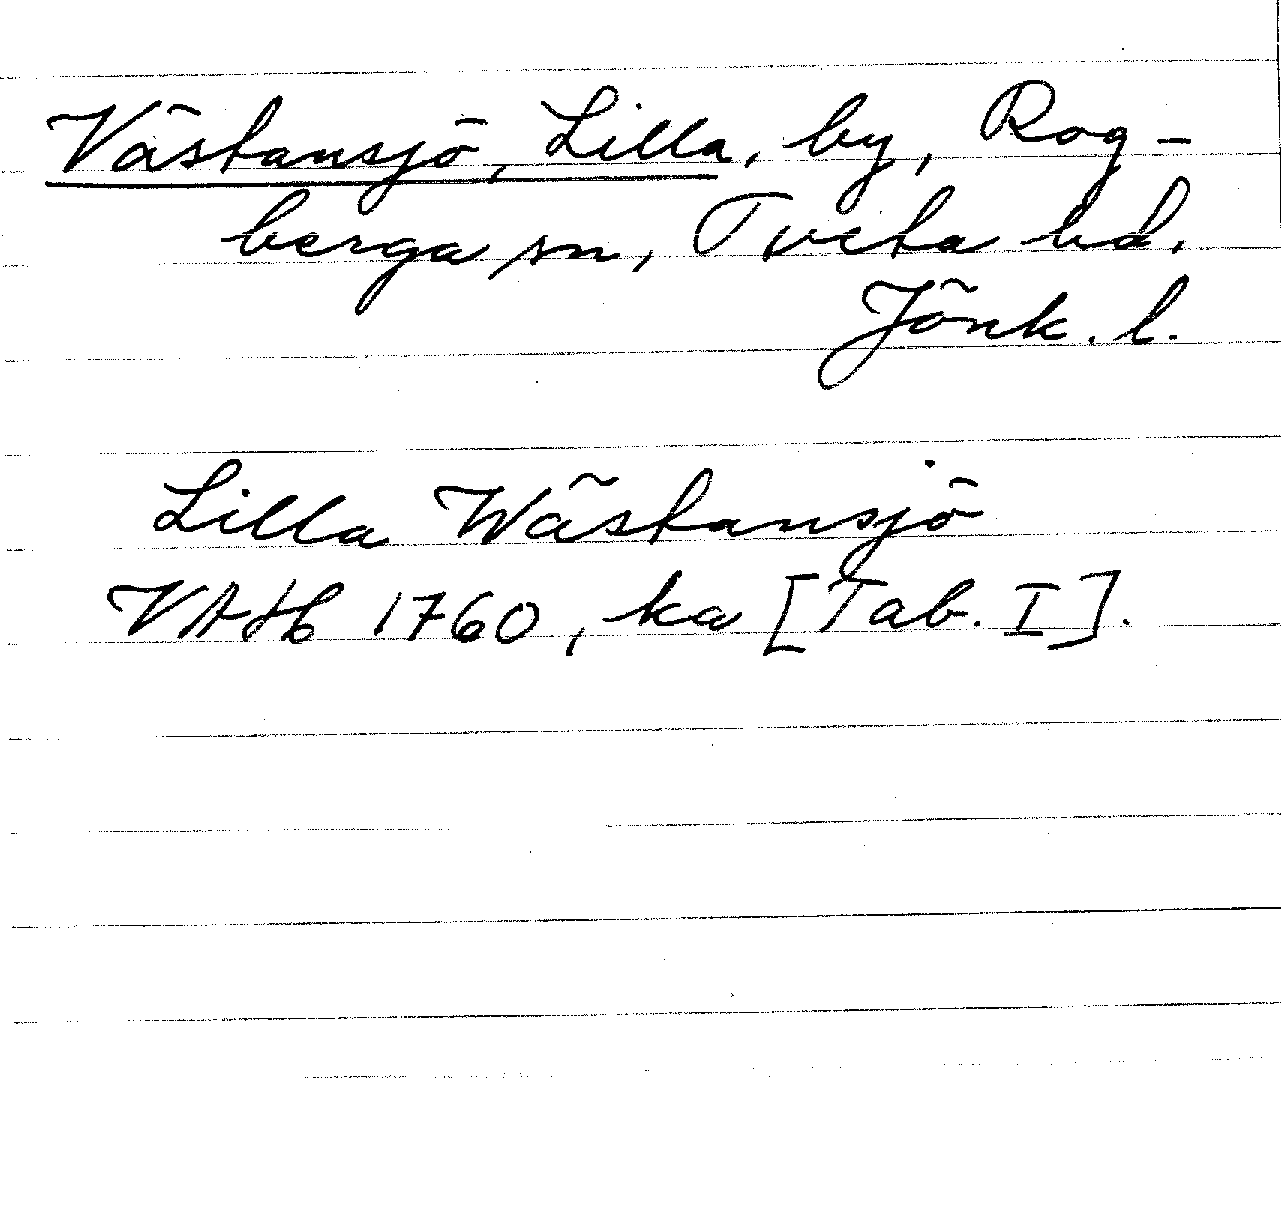 Västansjö, Lilla, by, Rog-
berga sn, Tveta hd.
Jönk. l.
Lilla Wästansjö
VAH 1760, ka [Tab. I].